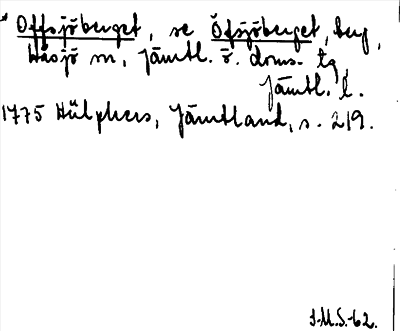 * Offsjöberget, se Öfsjöberget, berg,
Håsjö sn, Jämtl. ö. doms. tg
Jämtl. l.
1775 Hülphers, Jämtland, s. 219.
I.M.S.-62.